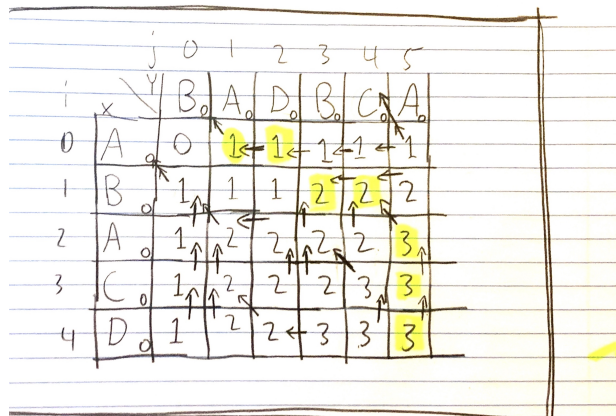 j 0 1 2 3 4 5
i X Y B 0 A 0 D 0 B 0 C 0 A 0
0 A 0 0 1 1 1 1 1
1 B 0 1 1 1 2 2 2
2 A 0 1 2 2 2 2 3
3 C 0 1 2 2 2 3 3
4 D 0 1 2 2 3 3 3